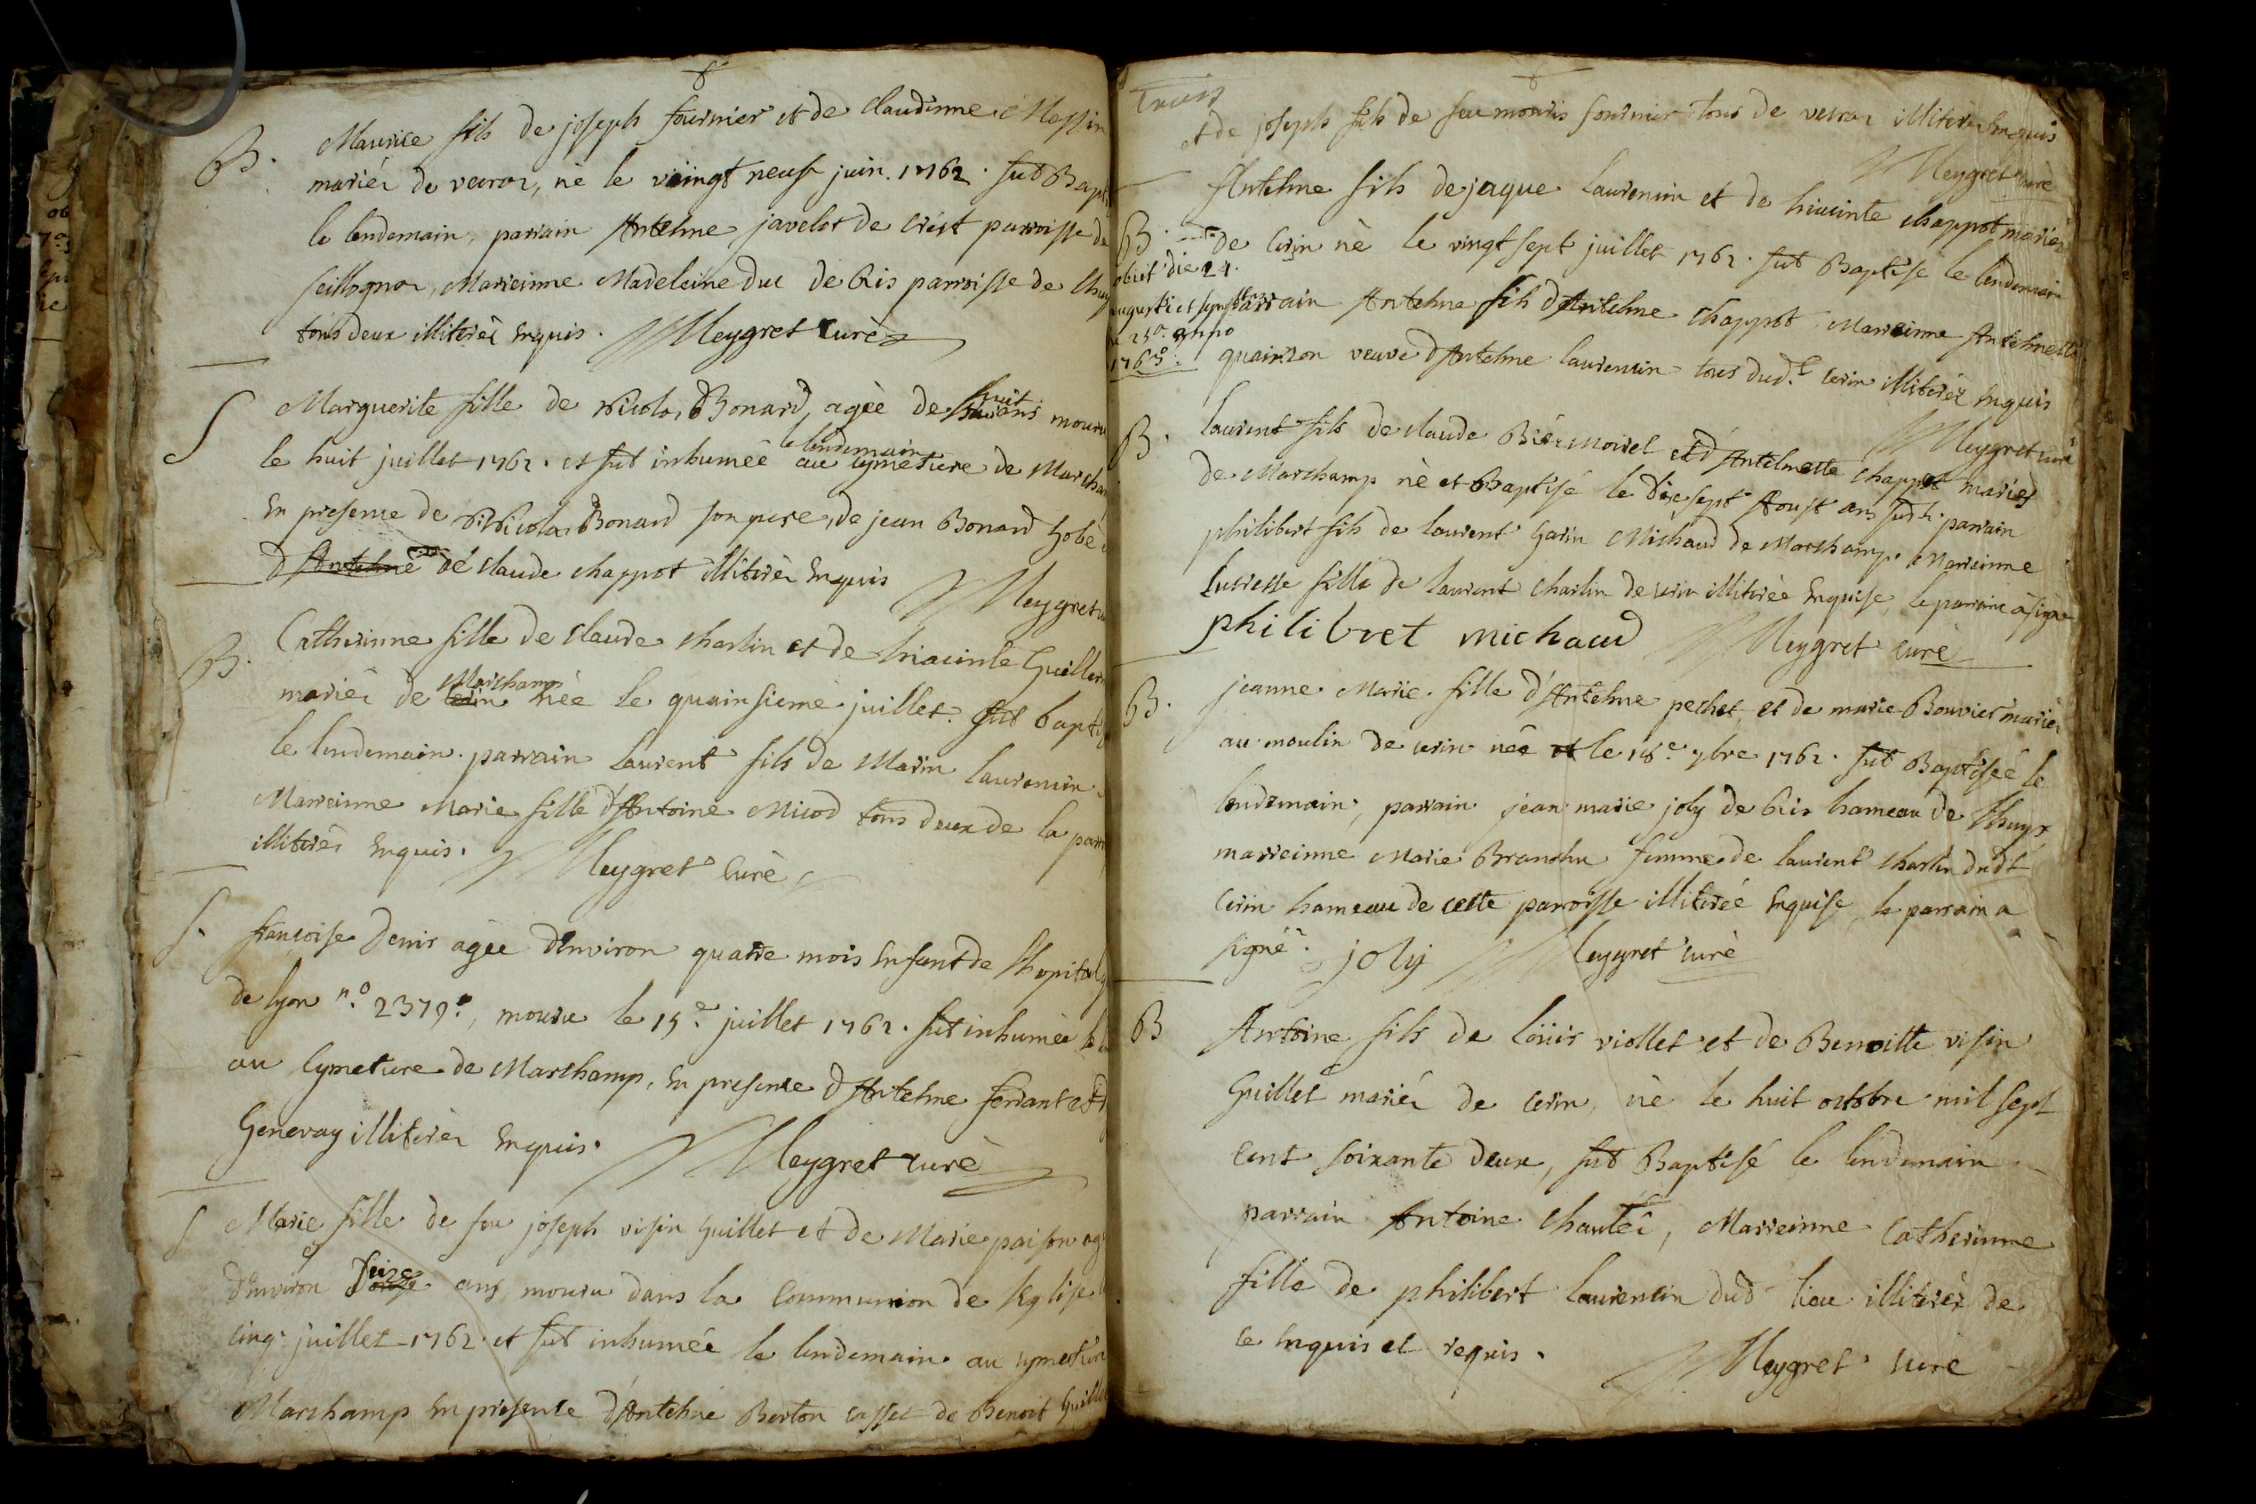 B. Maurice fils de joseph fournier et de claudinne Messin
mariés de veiron, né le viingt neuf juin. 1762. fut Bapt
le lendemain, parrain Antelme javelot de crést parroisse de
seillognon, Marreinne Madeleine duc de Cris parroisse de
tous deux illiterés Enquis. Meygret curé
S Marguerite fille de Nicolas Bonard, agée de huit ans mouru
le lendemain
le huit juillet 1762. et fut inhumée au cymetiere de Marcham
En presence de Nicolas Bonard son pere, de jean Bonard gobe
d'Antelme de claude chappot illiterés Enquis
Meygret
B. Catherinne fille de claude charlin et de hiacinte Guiller
Marchamp
mariés de cerin née le quainsieme juillet. fut baptis
le lendemain. parrain laurent fils de Marin laurencin.
Marreinne Marie fille d'Antoine Micod tous deux de la parr
illiterés Enquis. Meygret curé
S. françoise Denis agée d'Environ quatre mois Enfant de l'hopital
de lyon n.º 2379., mouru le 15.e juillet 1762. fut inhumée le
au Cymetiere de Marchamp, En presence d'Antelme ferrant et d
Genevay illiterés Enquis. Meygret curé
S Marie fille de feu joseph visin Guillet et de Marie paison ag
d'Environ seize ans, mouru dans la Communion de l'Eglise
cinq juillet 1762. et fut inhumée le lendemain. au cymetier
Marchamp En presence d'Antelme Berton casset de Benoit Guille
et de joseph fils de feu mouris fournier tous de veiron illiterés Enquis
Meygret curé
Antelme fils de jaque laurencin et de hiacinte chappot mariés
B. de Cerin né le vingt sept juillet 1762. fut Baptisé le lendemain
obiit die 24.
augusti et sepultus
parrain Antelme fils d'Antelme chappot. Marreinne Antelmette
25a anno
1765.
quainson veuve d'Antelme laurencin tous dud.t cerin illiterés Enquis
Meygret curé
B. laurent fils de claude Morel et d'Antelmette chappot mariés
de Marchamp né et Baptisé le dixsept Aoust an sudt. parrain
philibert fils de laurent Garin Michaud de Marchamp. Marreinne
lucresse fille de laurent charlin de cerin illiterée Enquise, le parrain a signé
philibret michaud Meygret curé
B. jeanne Marie fille d'Antelme pechet et de marie Bouvier mariés
au moulin de cerin née et le 18.e 7bre 1762. fut Baptisée le
lendemain, parrain jean marie joly de Cris hameau de
marreinne Marie Branchu femme de laurent charlin dudt
Cerin hameau de cette parroisse illiterée Enquise, le parrain a
signé. joly Meygret curé
B Antoine fils de loüis viollet et de Benoitte visin
Guillet mariés de cerin, né le huit octobre mil sept
cent soixante deux, fut Baptisé le lendemain
parrain Antoine, Marreinne Catherinne
fille de philibert laurencin dud lieu illiterés de
ce Enquis et requis.
Meygret curé